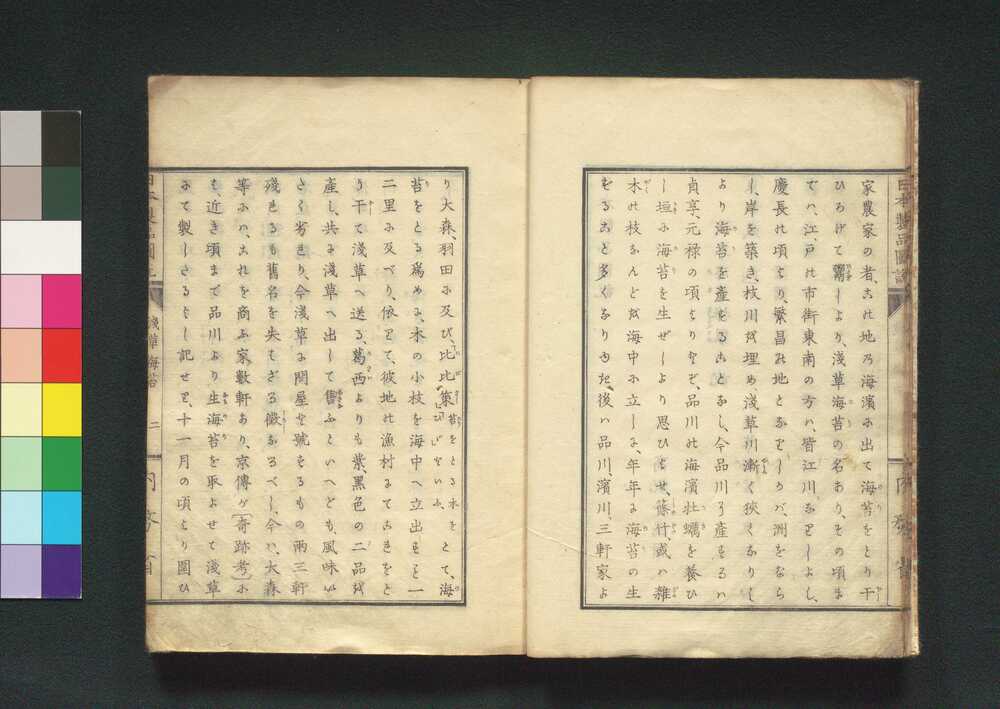 家農家の者、この地の海濱に出て海苔をとり干
ひろげて鬻しより、淺草海苔の名あり、その頃ま
でハ、江戸の市街東南の方ハ、皆江川なりしよし、
慶長の頃より、繁昌の地となりしかバ、洲をなら
し、岸を築き、枝川を埋め淺草川漸く狹くなりし
より海苔を產することなし、今品川に產するハ
貞享、元祿の頃よりにぞ、品川の海濱牡蠣を養ひ
し垣に海苔を生ぜしより思ひよせ、篠竹、或ハ雜
木の枝なんどを海中に立しに、年年に海苔の生
ずること多くなりゆき、後ハ品川、濱川、三軒家よ
日本製品圖說
內務省
り大森、羽田に及び、比比菓苔をとる木をとて、海
苔をとる爲めに、木の小枝を海中へ立出すこと一
二里に及べり、依りて、彼地の漁村にてこれをと
り干て淺草へ送る、葛西よりも紫、黑色の二品を
產し、共に淺草へ出して售ふといへども、風味い
たく劣れり、今淺草に関屋と號するもの兩三軒
殘れるも舊名を失ハざる徵なるべし、今ハ、大森
等にハ、これを商ふ家數軒あり、京傳ヶ〔奇跡考〕に
も、近き頃まで品川より生海苔を取よせて淺草
にて製しさるよし記せり、十一月の頃より圍ひ
淺草海苔
二